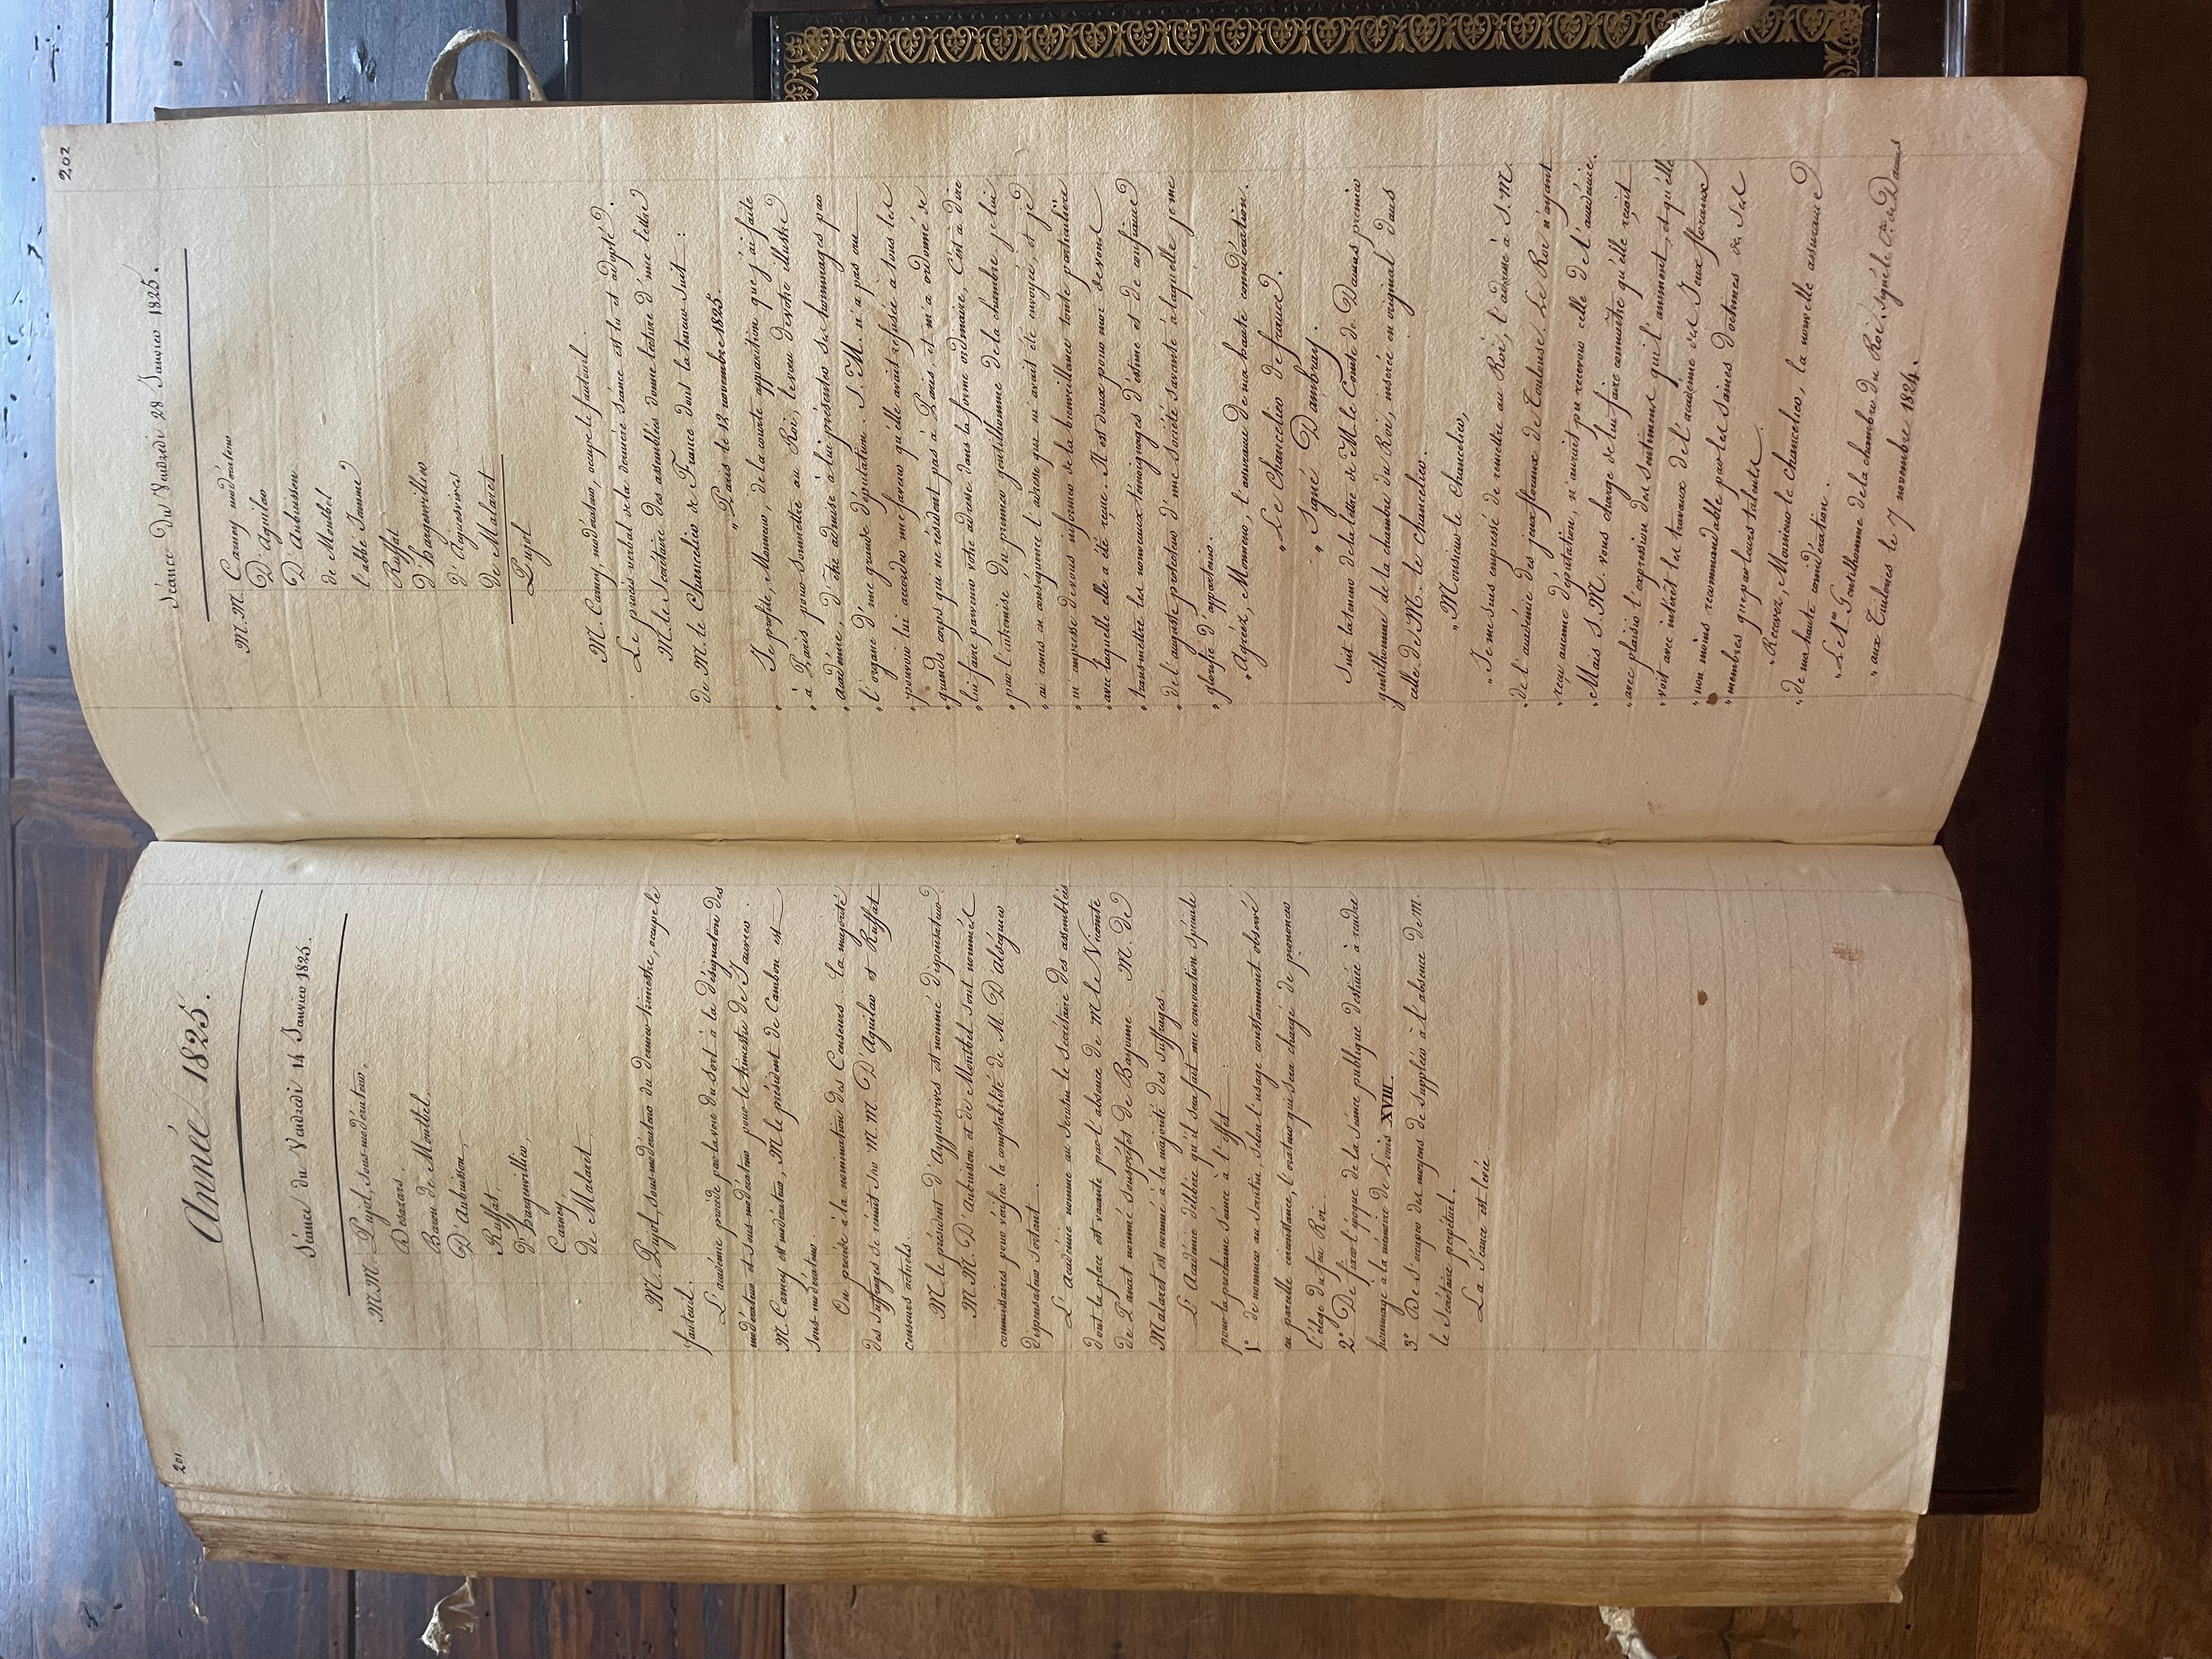 201
Année 1825.
Séance du Vendredi 14 Janvier 1825.
M.M. Pujol, sous-modérateur,
Desazars,
Baron de Montbel,
D'Aubuisson,
Ruffat,
D'hargenvillier,
Carney,
de Malaret,
M. Pujol, sous-modérateur du dernier trimestre, occupe le
fauteuil.
L'académie procède par la voie du sort à la désignation des
modérateur et sous-modérateur pour le trimestre de Janvier :
M. Carney est modérateur, M. le président de Cambon est
sous-modérateur.
On procède à la nomination des Censeurs. La majorité
des suffrages se réunit sur M.M. D'Aguilar et Ruffat
censeurs actuels.
M. le président d'Aiguesvives est nommé dispensateur.
M.M. D'Aubuisson et de Montbel sont nommés
commissaires pour vérifier la comptabilité de M. D'alséguier
dispensateur sortant.
L'Académie nomme au scrutin le Secrétaire des assemblées
dont la place est vacante par l'absence de M. le Vicomte
de Panat nommé sous préfet de Bayonne. M. de
Malaret est nommé à la majorité des suffrages.
L'Académie délibère qu'il sera fait une convocation spéciale
pour la prochaine séance à l'effet :
1° de nommer au scrutin, selon l'usage constamment observé
en pareille circonstance, l'orateur qui sera chargé de prononcer
l'éloge du feu Roi.
2° De fixer l'époque de la séance publique destinée à rendre
hommage à la mémoire de Louis XVIII.
3° De s'occuper des moyens de suppléer à l'absence de M.
le Secrétaire perpétuel.
La Séance est levée.
202
Séance du Vendredi 28 Janvier 1825.
M.M. Carney modérateur
D'Aguilar
D'Aubuisson
de Montbel
l'abbé Jamme
Ruffat
D'hargenvillier
d'Aiguesvives
de Malaret
Pujol
M. Carney, modérateur, occupe le fauteuil.
Le procès-verbal de la dernière séance est lu et adopté.
M. le Secrétaire des assemblées donne lecture d'une lettre
de M. le Chancelier de France dont la teneur suit :
„ Paris le 13 novembre 1825.
„ Je profite, Monsieur, de la courte apparition que j'ai faite
„ à Paris pour soumettre au Roi, le vœu de votre illustre
„ académie, d'être admise à lui présenter ses hommages par
„ l'organe d'une grande députation. S. M. n'a pas cru
„ pouvoir lui accorder une faveur qu'elle avait refusée à tous les
„ grands corps qui ne résident pas à Paris, et m'a ordonné de
„ lui faire parvenir votre adresse dans la forme ordinaire, c'est à dire
„ par l'entremise du premier gentilhomme de la chambre je lui
„ ai remis en conséquence l'adresse qui m'avait été envoyée, et je
„ m'empresse de vous informer de la bienveillance toute particulière
„ avec laquelle elle a été reçue. Il est doux pour moi de vous
„ transmettre les nouveaux témoignages d'estime et de confiance
„ de l'auguste protecteur d'une société savante à laquelle je me
„ glorifie d'appartenir.
„ Agréez, Monsieur, l'assurance de ma haute considération.
„ Le Chancelier de france.
„ Signé Dambray.
Suit la teneur de la lettre de M. le Comte de Damas premier
gentilhomme de la chambre du Roi, insérée en original dans
celle de M. le chancelier.
„ Monsieur le Chancelier,
„ Je me suis empressé de remettre au Roi, l'adresse à S. M.
„ de l'académie des jeux floraux de Toulouse. Le Roi n'ayant
„ reçu aucune députation, n'aurait pu recevoir celle de l'académie.
„ Mais S. M. vous charge de lui faire connaître qu'elle reçoit
„ avec plaisir l'expression des sentimens qui l'animent, et qu'elle
„ voit avec intérêt les travaux de l'académie des Jeux floraux
„ non moins recommandable par les saines doctrines de ses
„ membres que par leurs talents.
„ Recevez, Monsieur le Chancelier, la nouvelle assurance
„ de ma haute considération.
„ Le 1er Gentilhomme de la chambre du Roi. Signé le Cte de Damas
„ aux Tuileries le 7 novembre 1824.